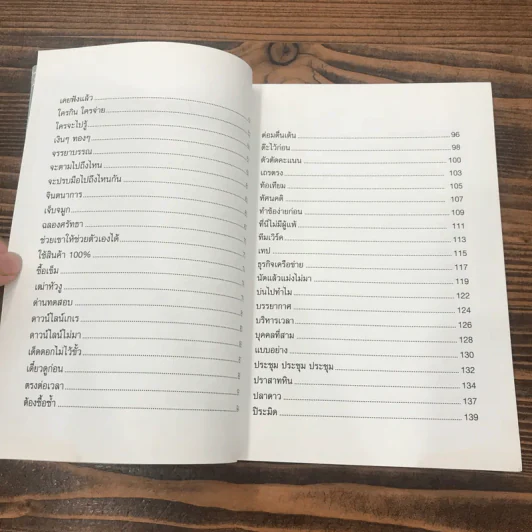 เคยฟังแล้ว
ใครกิน ใครจ่าย
ใครจะไปรู้
เงินๆ ทองๆ
จรรยาบรรณ
จะตามไปถึงไหน
จะปรบมือไปถึงไหนกัน
จินตนาการ
เจ็บจมูก
ฉลองศรัทธา
ช่วยเขาให้ช่วยตัวเองได้
ใช้สินค้า 100%
ซื้อเข็ม
เฒ่าหัวงู
ด่านทดสอบ
ดาวน์ไลน์เกเร
ดาวน์ไลน์ไม่มา
เด็ดดอกไม้ไว้ขั้ว
เดี๋ยวดูก่อน
ตรงต่อเวลา
ต้องซื้อซ้ำ
ต่อมตื่นเต้น 96
ต๊ะไว้ก่อน 98
ตัวตัดคะแนน 100
เถรตรง 103
ท้อเทียม 105
ทัศนคติ 107
ทำข้อง่ายก่อน 109
ที่นี่ไม่มีผู้แพ้ 111
ทีมเวิร์ค 113
เทป 115
ธุรกิจเครือข่าย 117
นัดแล้วแม่งไม่มา 119
บ่นไปทำไม 122
บรรยากาศ 124
บริหารเวลา 126
บุคคลที่สาม 128
แบบอย่าง 130
ประชุม ประชุม ประชุม 132
ปราสาทหิน 134
ปลาดาว 137
ปิระมิด 139